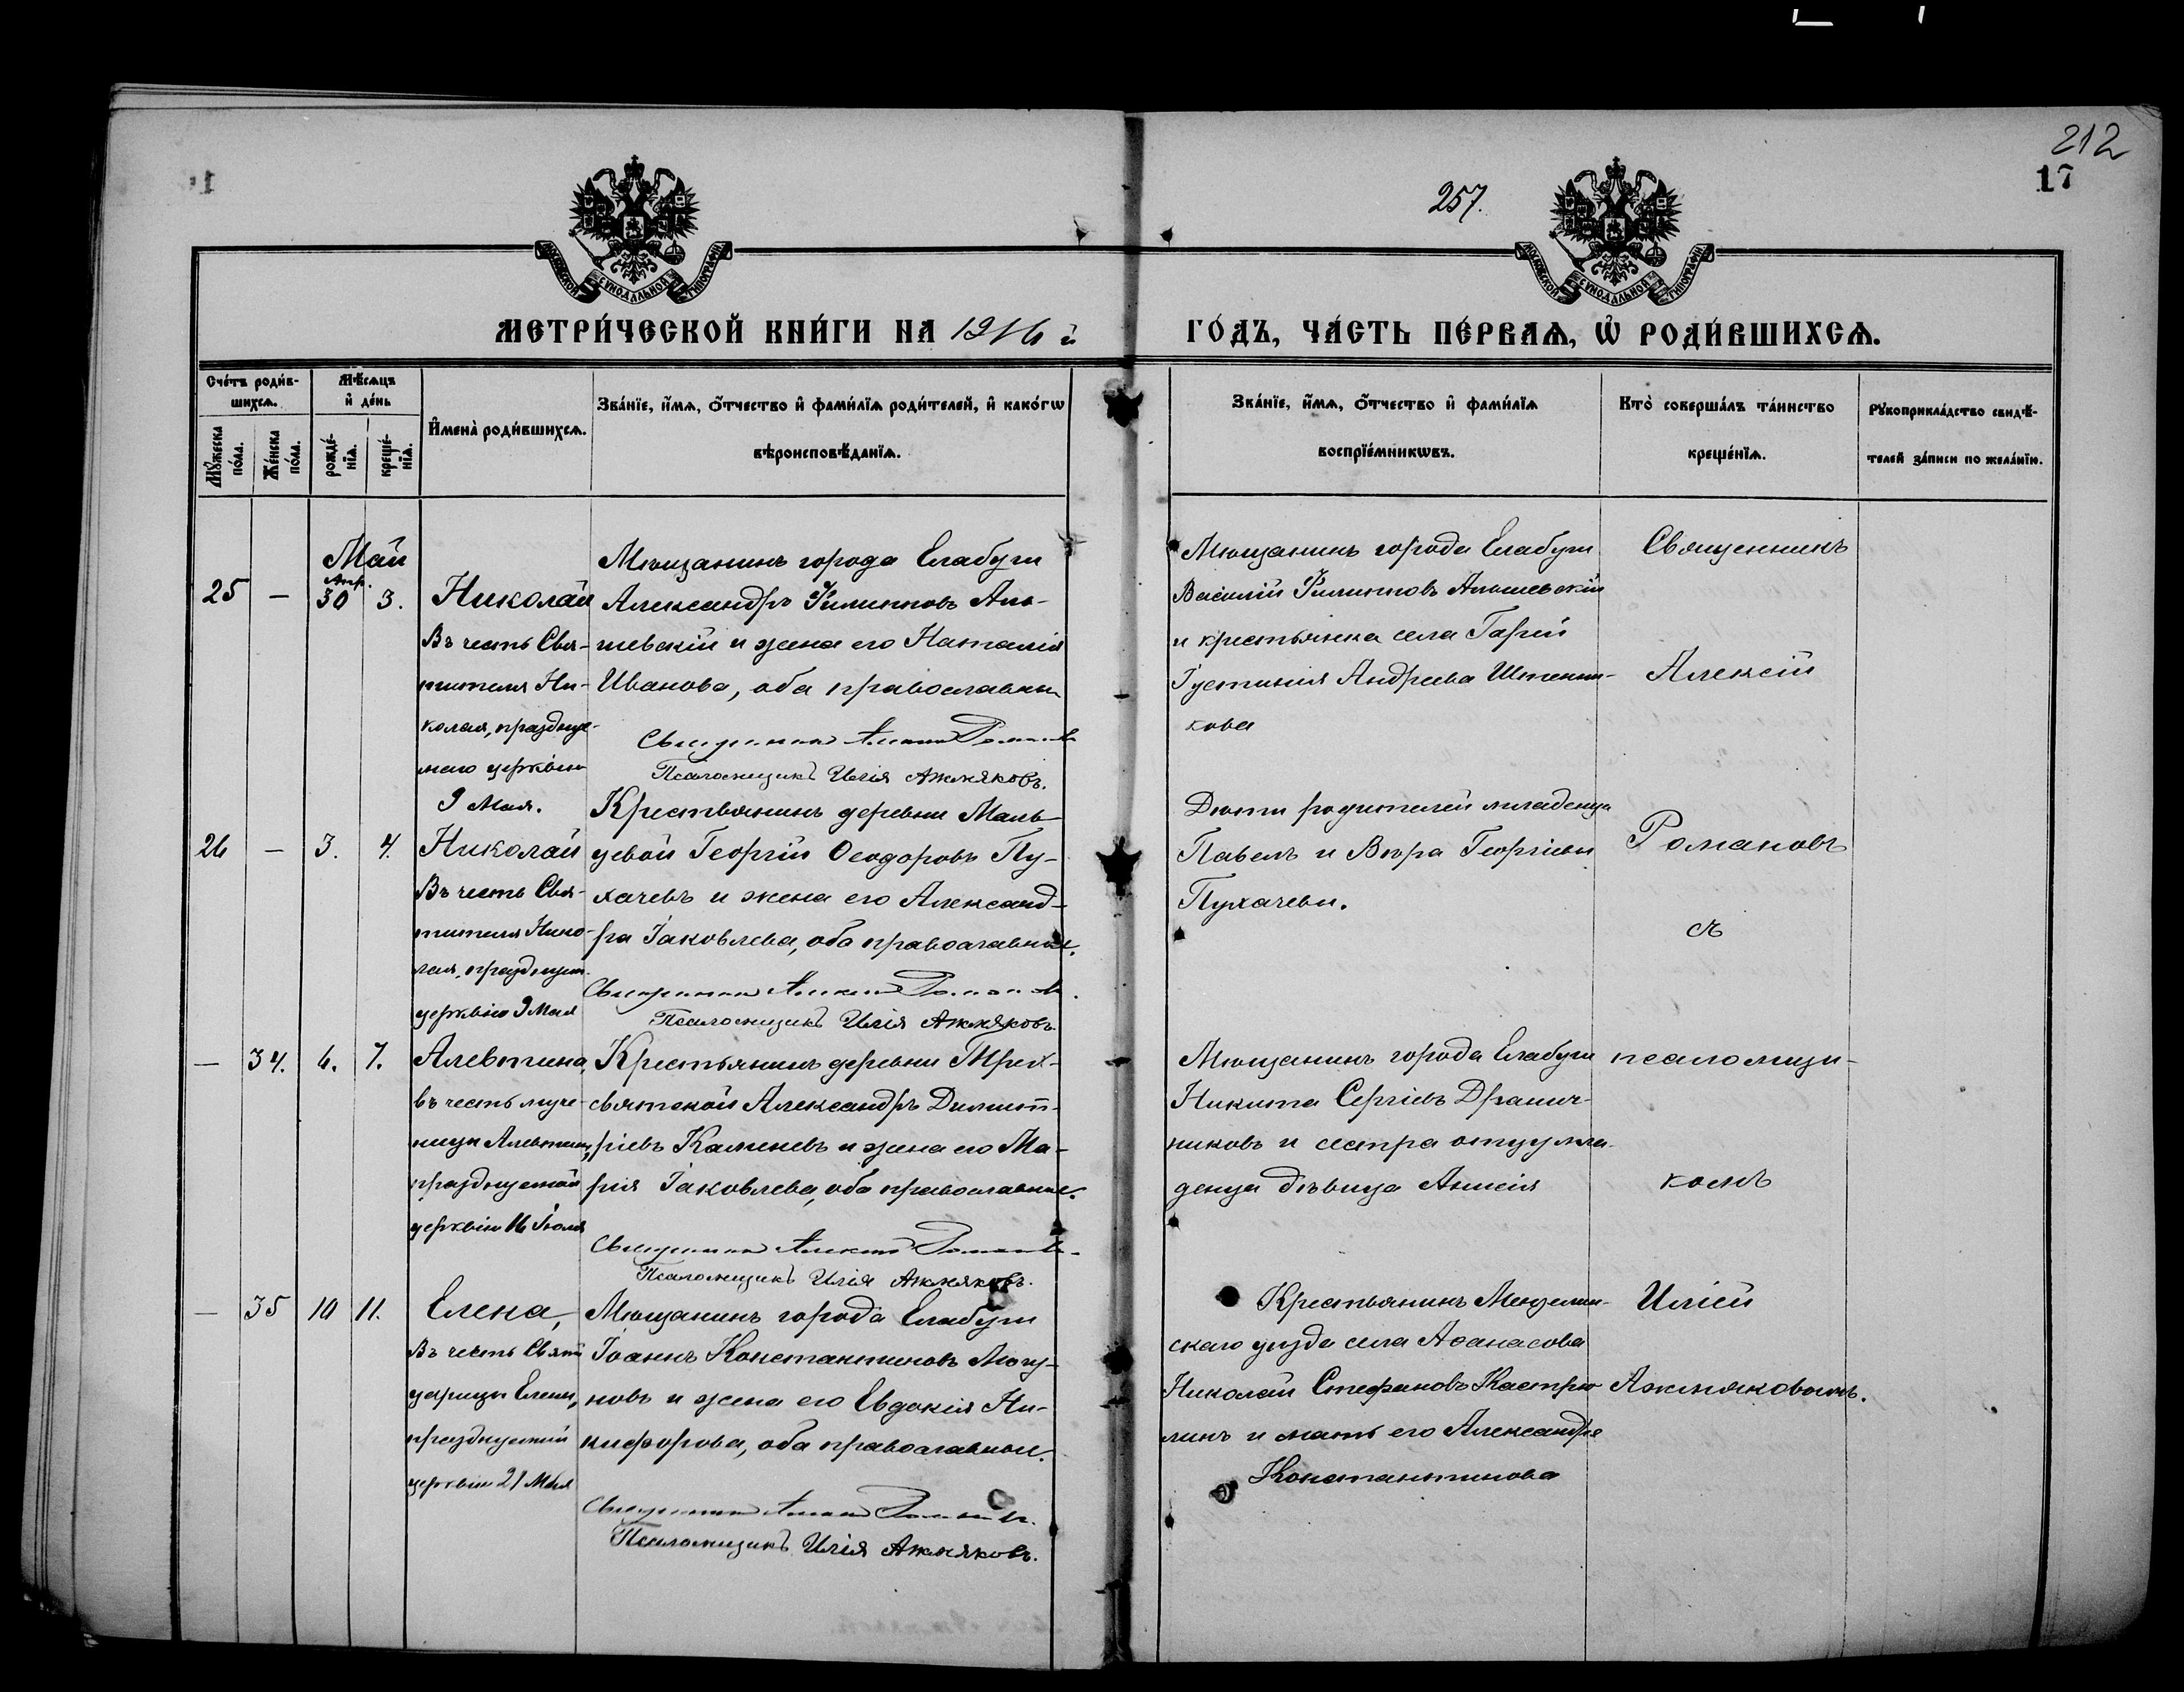 212
17
257.
МОСКОВСКОЙ СѴНОДАЛЬНОЙ ТИПОГРАФІИ
МОСКОВСКОЙ СѴНОДАЛЬНОЙ ТИПОГРАФІИ
МЕТРИ́ЧЕСКОЙ КНИ́ГИ НА 1916 й
ГО́ДЪ, ЧА́СТЬ ПЕ́РВАѦ, Ѡ҆ РОДИ́ВШИХСѦ.
Сче́тъ роди́в-
шихсѧ.
Мѣ́сѧцъ
и҆ де́нь
Мꙋ́жеска по́ла.
Же́нска по́ла.
рожде́-
нїѧ.
креще́-
нїѧ.
И҆мена̀ роди́вшихсѧ.
Зва́нїе, и҆́мѧ, ѻ҆́тчество и҆ фами́лїѧ роди́телей, и҆ како́гѡ
вѣроисповѣ́данїѧ.
Зва́нїе, и҆́мѧ, ѻ҆́тчество и҆ фами́лїѧ
воспрїе́мникѡвъ.
Кто̀ соверша́лъ та́инство
креще́нїѧ.
Рꙋкоприкла́дство свидѣ́-
телей за́писи по жела́нїю.
Май
25 — Апр. 30 3.
Николай
Въ честь Свя-
тителя Ни-
колая, праздну-
маго церковію
9 Мая.
Мѣщанинъ города Елабуги
Александръ Филипповъ Аль-
шевскій и жена его Наталія
Иванова, оба православны
Священникъ Алексій Романовъ
Псаломщикъ Илія Ажмяковъ.
Мѣщанинъ города Елабуги
Василій Филипповъ Альшевскій
и крестьянка села Гарей
Іустинія Андреева Штенни-
кова
Священникъ
Алексій
26 — 3. 4.
Николай
Въ честь Свя-
тителя Нико-
лая, празднуем.
церковію 9 Мая
Крестьянинъ деревни Маль-
цевой Георгій Ѳеодоровъ Пу-
хачевъ и жена его Александ-
ра Іаковлева, оба православные.
Священникъ Алексій Романовъ.
Псаломщикъ Илія Ажмяковъ.
Дѣти родителей младенца
Павелъ и Вѣра Георгіевы
Пухачевы.
Романовъ
съ
— 34. 6. 7.
Алевтина,
въ честь муче-
ницы Алевтины,
празднуемой
церковію 16 Іюля
Крестьянинъ деревни Трех-
святской Александръ Димит-
ріевъ Каменевъ и жена его Ма-
рія Іаковлева, оба православные.
Священникъ Алексій Романовъ.
Псаломщикъ Илія Ажмяковъ.
Мѣщанинъ города Елабуги
Никита Сергіевъ Дранич-
никовъ и сестра отцу мла-
денца дѣвица Анисія
псаломщи-
комъ
— 35 10 11.
Елена,
Въ честь Свят.
царицы Елены,
празднуемой
церковію 21 Мая
Мѣщанинъ города Елабуги
Іоаннъ Константиновъ Могу-
новъ и жена его Евдокія Ни-
кифорова, оба православные.
Священникъ Алексій Романовъ.
Псаломщикъ Илія Ажмяковъ.
Крестьянинъ Мензелин-
скаго уѣзда села Аѳанасова
Николай Стефановъ Кастрю-
линъ и мать его Александра
Константинова
Иліей
Ажмяковымъ.